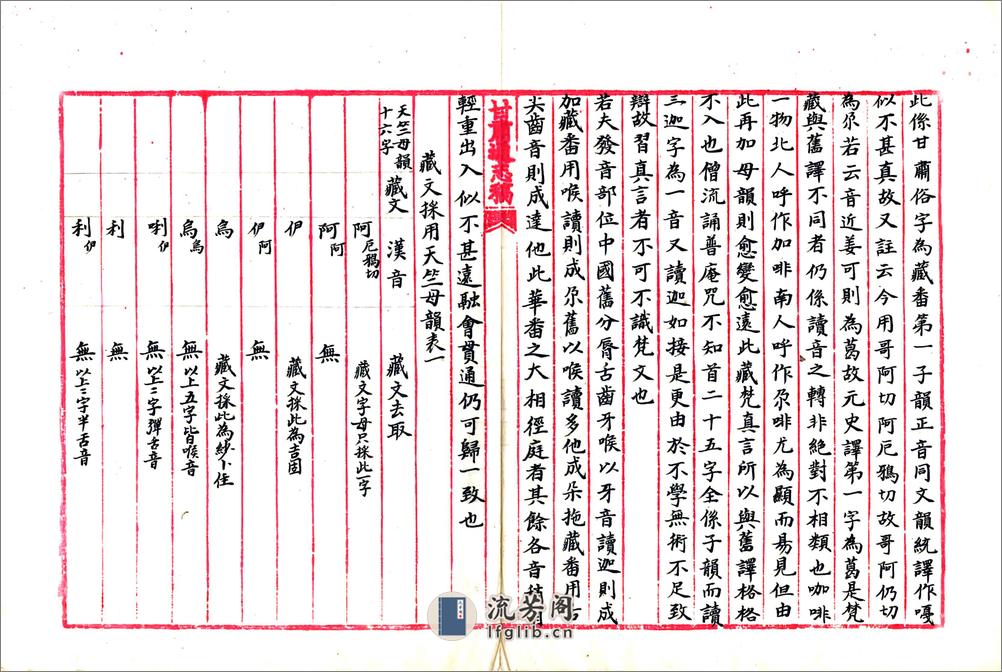 此係甘肅俗字為藏番第一子韻正音同文韻統譯作嘎
似不甚真故又註云今用哥阿切阿厄鴉切故哥阿仍切
為尕若云音近姜可則為葛故元史譯第一字為葛是梵
藏與舊譯不同者仍係讀音之轉非絕對不相類也咖啡
一物北人呼作加啡南人呼作尕啡尤為顯而易見但由
此再加母韻則愈變愈遠此藏梵真言所以與舊譯格格
不入也僧流誦普庵咒不知首二十五字全係子韻而讀
三迦字為一音又讀迦如接是更由於不學無術不足致
辯故習真言者不可不識梵文也
若夫發音部位中國舊分唇舌齒牙喉以牙音讀迦則成
加藏番用喉讀則成尕舊以喉讀多他成朵拖藏番用舌
尖齒音則成達他此華番之大相徑庭者其餘各音
甘肅通志稿
輕重出入似不甚遠融會貫通仍可歸一致也
藏文採用天竺母韻表一
天竺母韻十六字 藏文 漢音 藏文去取
阿厄鴉切 藏文字母只採此一字
阿阿 無
伊 藏文採此為吉固
伊阿 無
烏 藏文採此為紗卜住
烏烏 無以上五字皆喉音
唎伊 無以上二字彈舌音
利 無
利伊 無以上二字半舌音
流芳阁
lfglib.cn